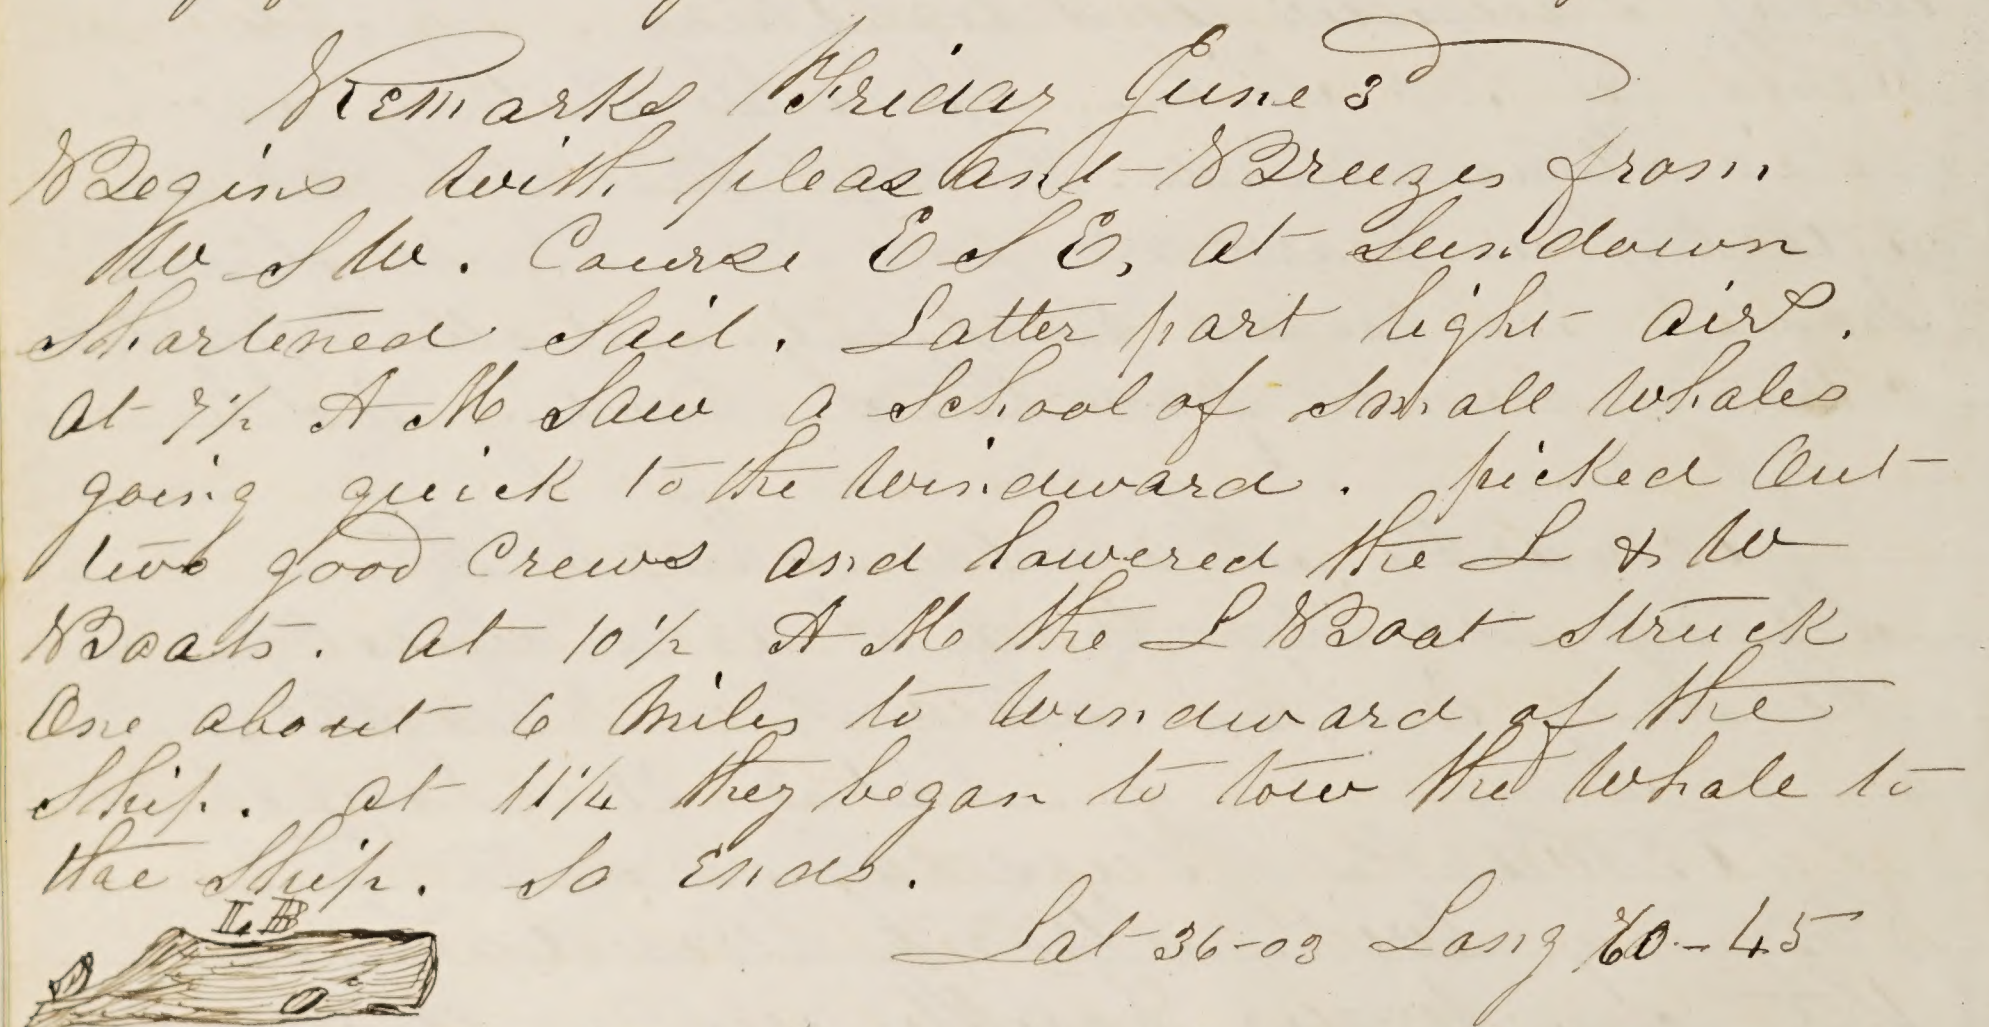 Remarks Friday June 3d
Begins with pleasant Breezes from
W S W. Course E S E, at Sundown
Shortened Sail. Latter part light airs.
at 7 1/2 A M Saw a School of Small Whales
going quick to the windward. picked Out
two good Crews and lowered the L & W
Boats. at 10 1/2 A M the L Boat Struck
One about 6 Miles to windward of the
Ship. at 11 1/4 they began to tow the Whale to
the Ship. So Ends.
L. B
Lat 36-03 Long 60-45